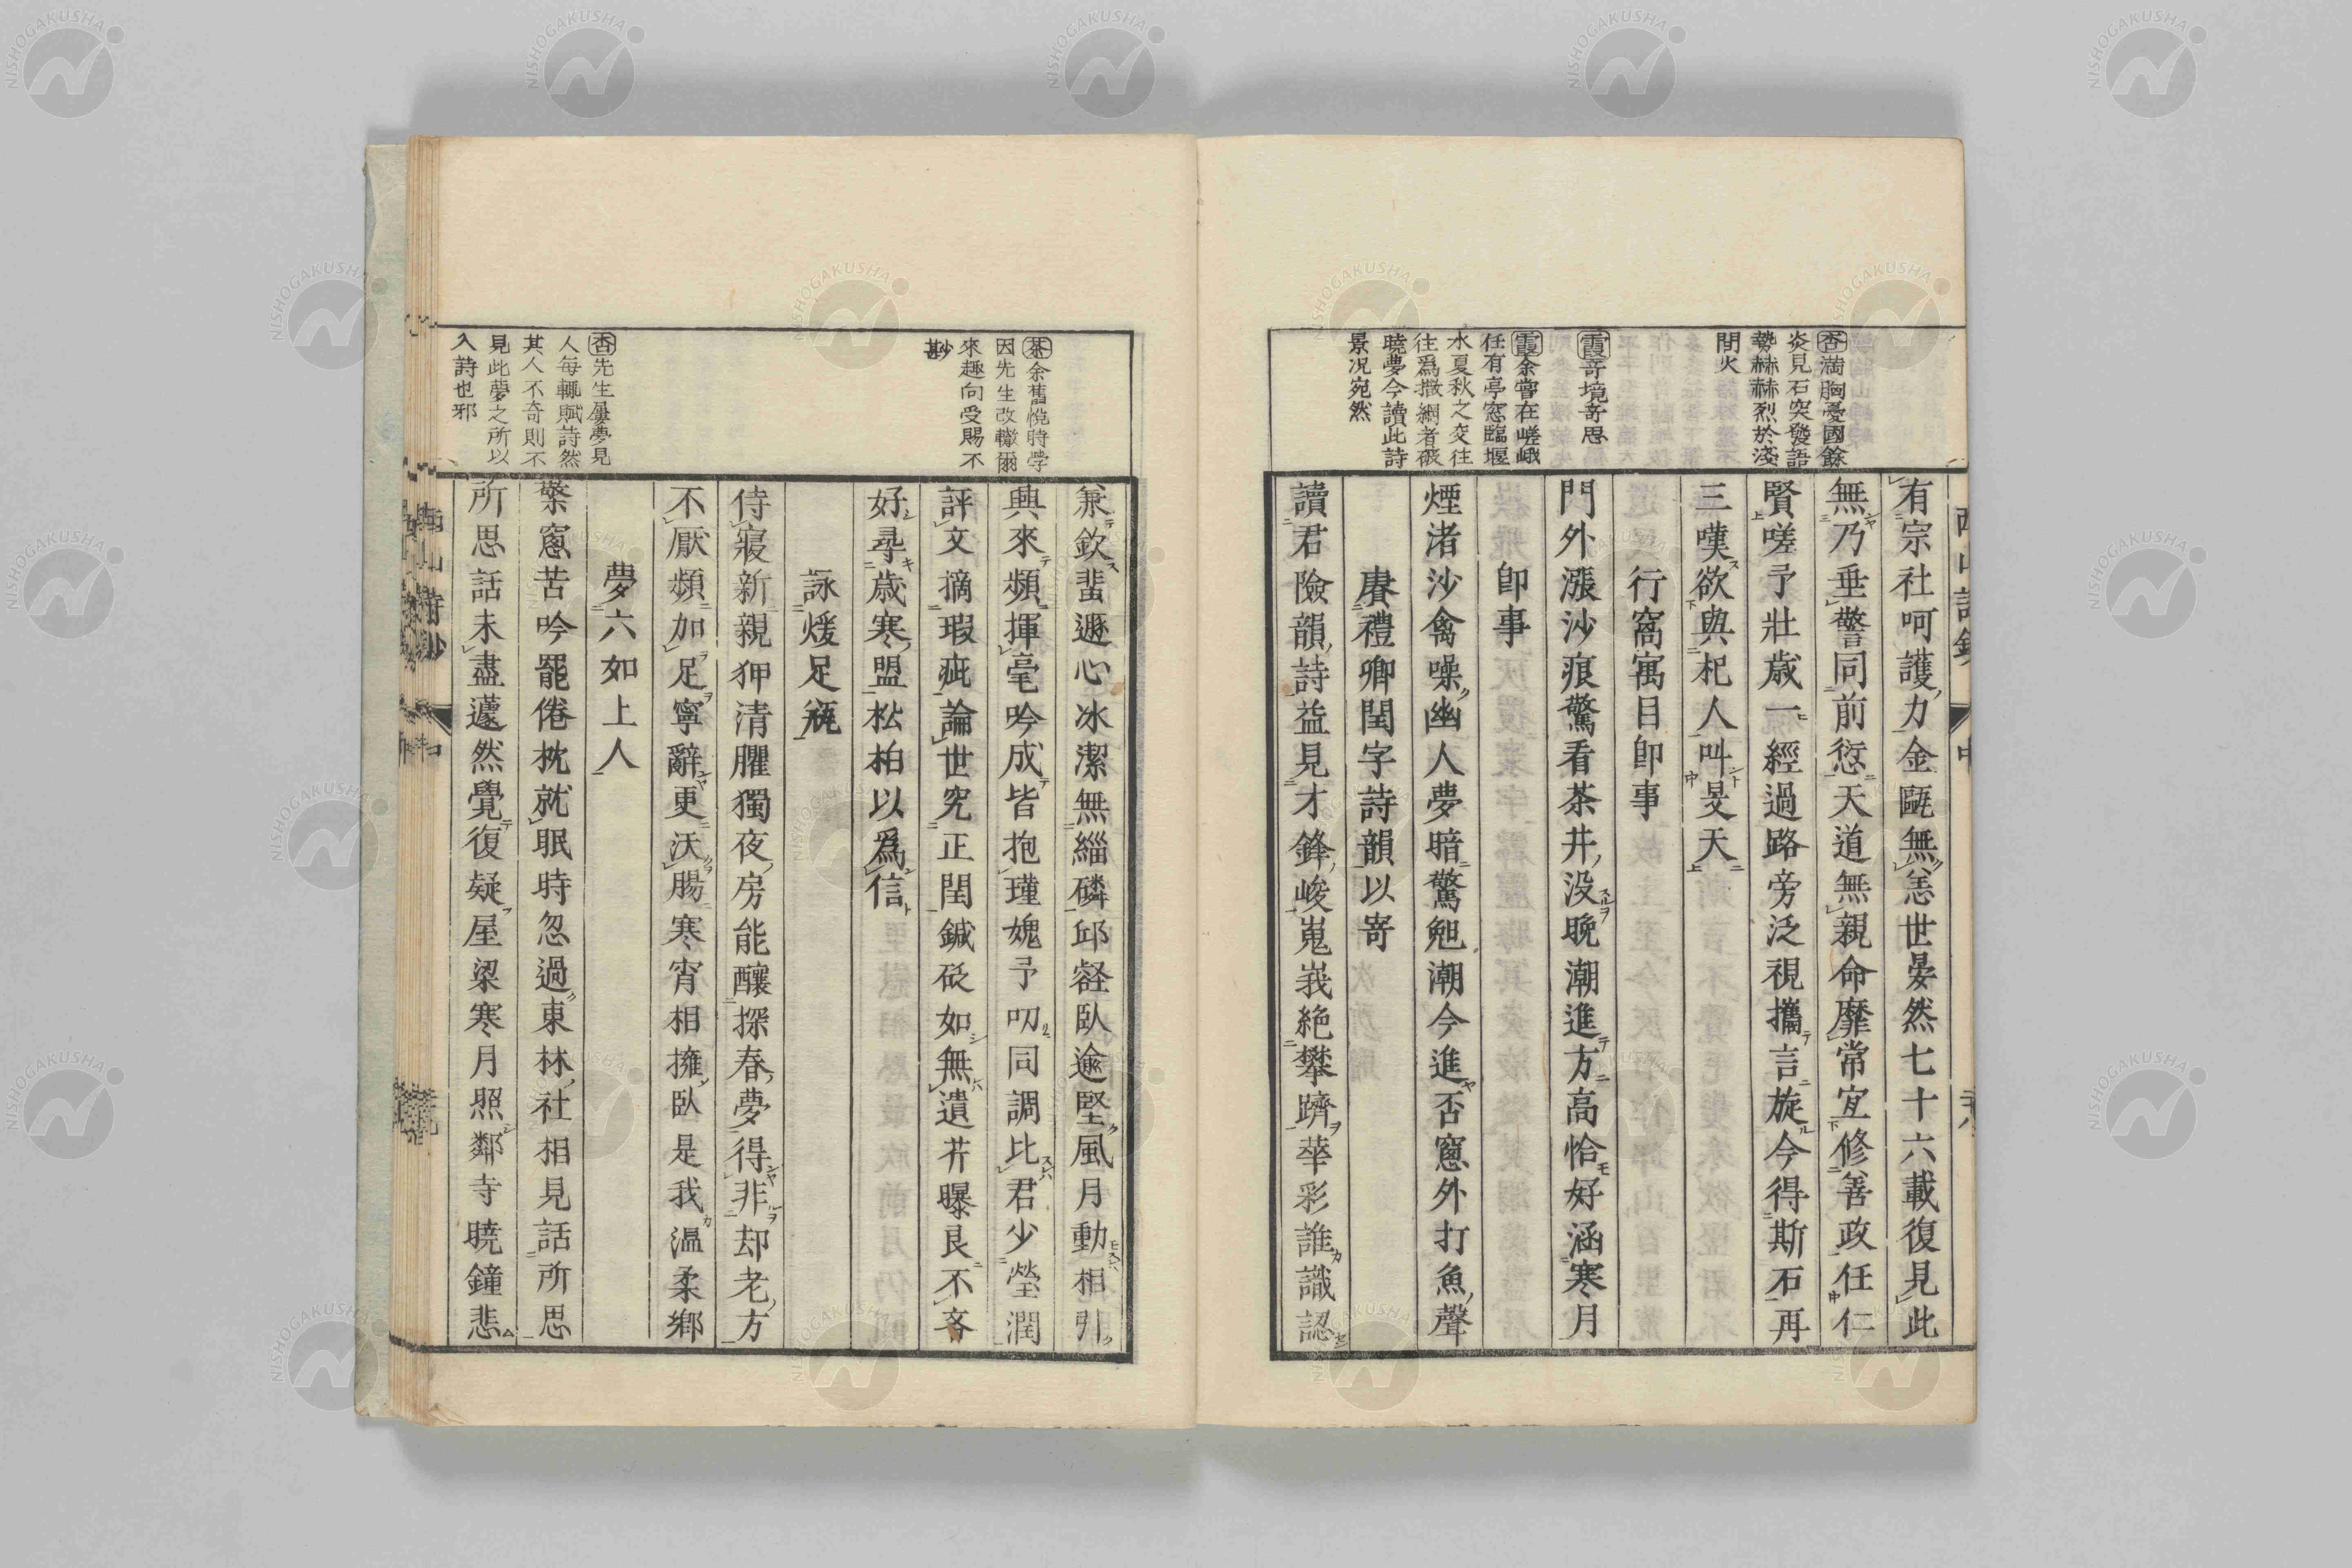 有宗社呵護力金甌無恙世晏然七十六載復見此
無乃垂警同前愆天道無親命靡常宜修善政任仁
賢嗟予壯歲一經過路旁泛視攜言旋今得斯石再
三嘆欲與杞人叫旻天
行窩寓目即事
門外漲沙痕驚看茶井没晚潮進方高恰好涵寒月
即事
煙渚沙禽噪幽人夢暗驚夗潮今進否窻外打魚聲
賡禮卿閏字詩韻以寄
讀君險韻詩益見才鋒峻嵬峩絶攀躋華彩誰識認
杏滿胸憂國餘
炎見石突發語
勢赫赫烈於淺
間火
霞奇境奇思
霞余嘗在嵯峨
任有亭窓臨堰
水夏秋之交往
往爲撒網者破
曉夢今讀此詩
景况宛然
兼欽蜚遯心冰潔無緇磷邱壑臥逾堅風月動相引
興來頻揮毫吟成皆抱瑾媿予叨同調比君少瑩潤
評文摘瑕疵論世究正閏鍼砭如無遺芹曝艮不吝
好尋歲寒盟松柏以爲信
詠煖足瓶
侍寢新親狎清臞獨夜房能釀探春夢得非却老方
不厭頻加足寧辭更沃腸寒宵相擁臥是我温柔鄉
夢六如上人
檠窻苦吟罷倦枕就眠時忽過東林社相見話所思
所思話未盡蘧然覺復疑屋梁寒月照鄰寺曉鐘悲
茶余舊悅時學
因先生改轍爾
來趣向受賜不
尠
杏先生屢夢見
人每輙賦詩然
其人不奇則不
見此夢之所以
入詩也邪
西山詩鈔
中
NISHOGAKUSHA